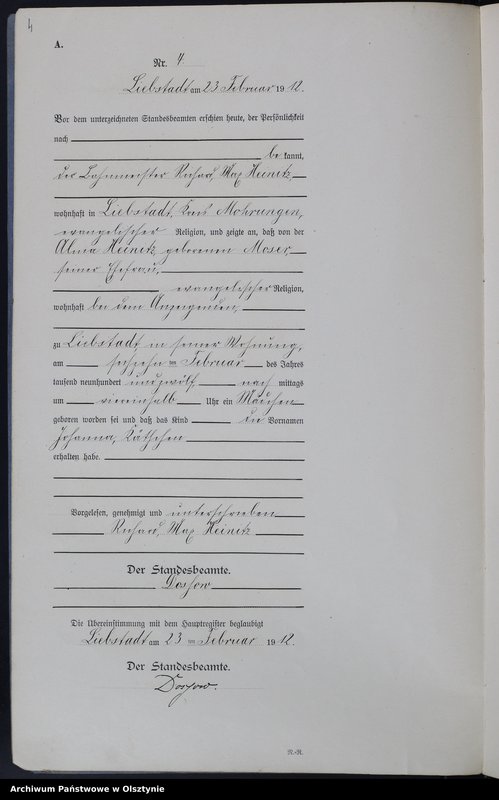 4
A.
Nr. 4.
Liebstadt am 23 Februar 1912.
Vor dem unterzeichneten Standesbeamten erschien heute, der Persönlichkeit
nach
be kannt,
der Bahnmeister Richard, Max Heinitz,
wohnhaft in Liebstadt, Kreis Mohrungen,
evangelischer Religion, und zeigte an, daß von der
Alma Heinitz geborenen Moser,
seiner Ehefrau,
evangelischer Religion,
wohnhaft bei dem Anzeigenden,
zu Liebstadt in seiner Wohnung,
am sechzehn ten Februar des Jahres
tausend neunhundert und zwölf, nach mittags
um viereinhalb Uhr ein Mädchen
geboren worden sei und daß das Kind die Vornamen
Johanna, Käthchen
erhalten habe.
Vorgelesen, genehmigt und unterschrieben
Richard, Max Heinitz
Der Standesbeamte.
Dossow
Die Übereinstimmung mit dem Hauptregister beglaubigt
Liebstadt am 23 ten Februar 1912.
Der Standesbeamte.
Dossow.
M.-R.
Archiwum Państwowe w Olsztynie